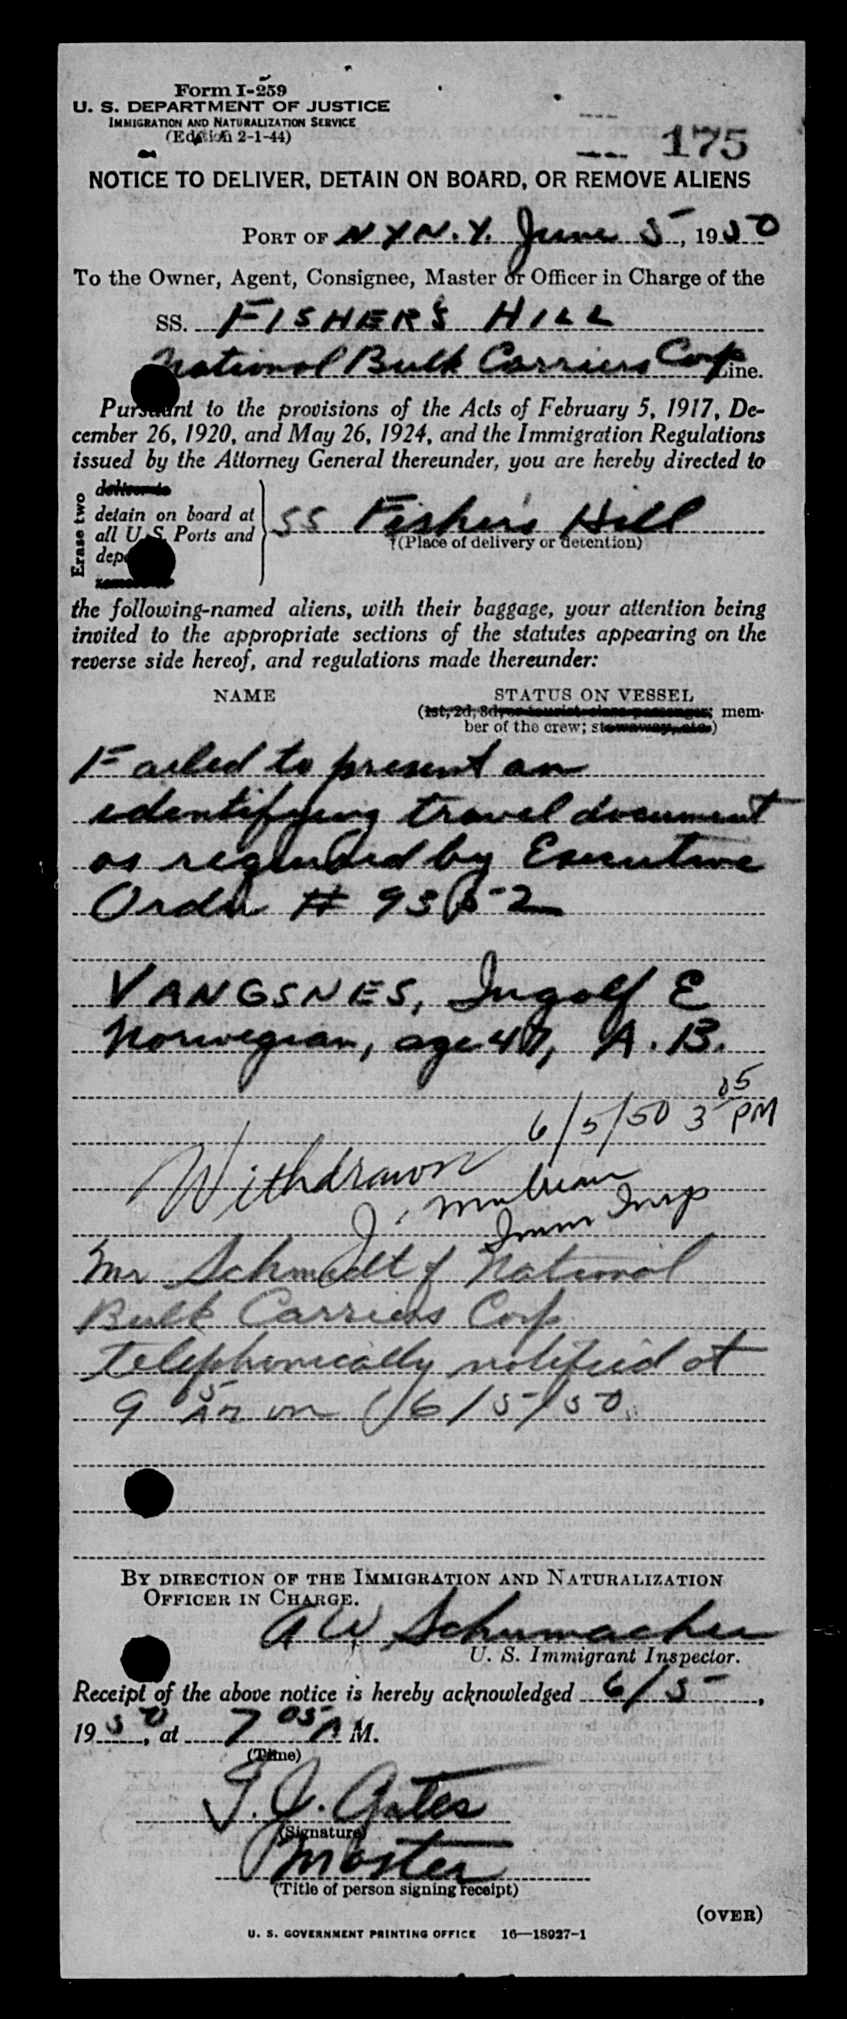 Form I-259
U. S. DEPARTMENT OF JUSTICE
IMMIGRATION AND NATURALIZATION SERVICE
(Edition 2-1-44)
175
NOTICE TO DELIVER, DETAIN ON BOARD, OR REMOVE ALIENS
PORT OF N Y N.Y. June 5, 1950
To the Owner, Agent, Consignee, Master or Officer in Charge of the
SS. FISHER'S HILL
National Bulk Carriers Corp Line.
Pursuant to the provisions of the Acts of February 5, 1917, De-
cember 26, 1920, and May 26, 1924, and the Immigration Regulations
issued by the Attorney General thereunder, you are hereby directed to
Erase two
deliver to
detain on board at
all U. S. Ports and SS Fisher's Hill
(Place of delivery or detention)
the following-named aliens, with their baggage, your attention being
invited to the appropriate sections of the statutes appearing on the
reverse side hereof, and regulations made thereunder:
NAME STATUS ON VESSEL
(1st, 2d, 3d, or tourist class passenger; mem-
ber of the crew; stowaway, etc.)
Failed to present an
identifying travel document
as required by Executive
Order # 9352
VANGSNES, Ingolf E
Norwegian, age 47, A.B.
6/5/50 3 05 PM
Withdrawn
J. Imm Insp
Mr Schmidt of National
Bulk Carriers Corp
telephonically notified at
9 05 AM on 6/5/50.
BY DIRECTION OF THE IMMIGRATION AND NATURALIZATION
OFFICER IN CHARGE.
A W Schumacher
U. S. Immigrant Inspector.
Receipt of the above notice is hereby acknowledged 6/5,
1950, at 7 05 A M.
(Time)
T. J. Gates
(Signature)
Master
(Title of person signing receipt)
(OVER)
U. S. GOVERNMENT PRINTING OFFICE 16—18927-1